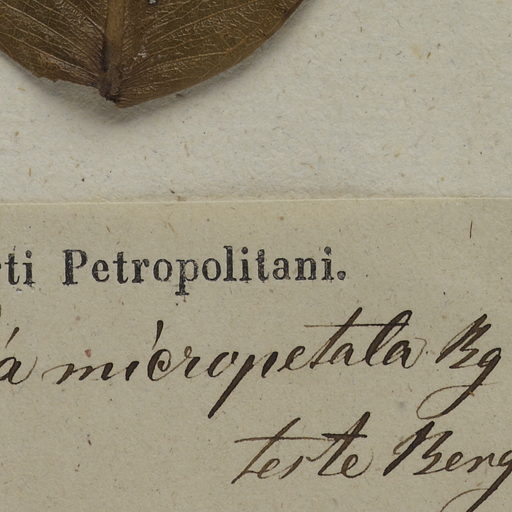 rti Petropolitani.
a micropetala Bg
teste Berg